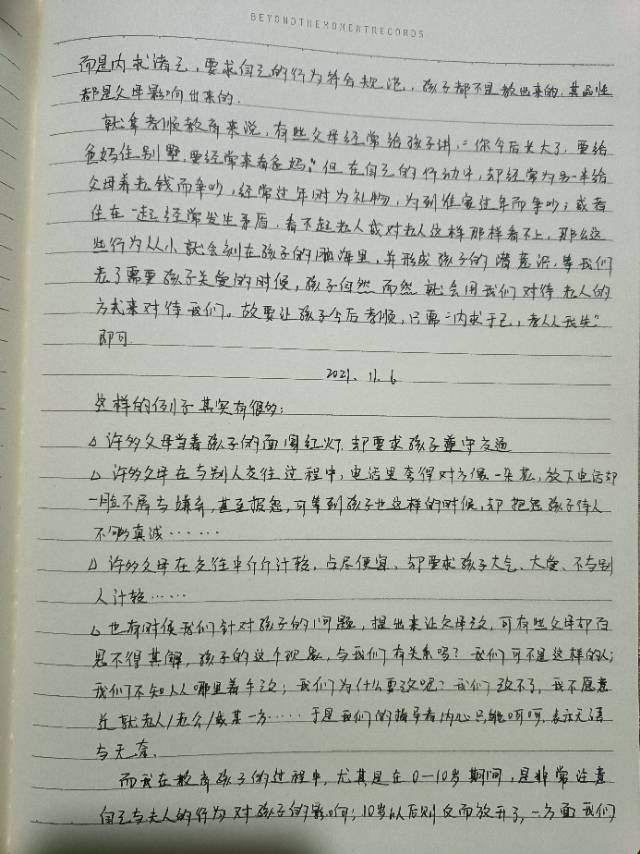 BEYONDTHEMOMENTRECORDS
而是内求诸己，要求自己的行为符合规范，孩子都不是教出来的，其品性
都是父母影响出来的。
就拿孝顺教育来说，有些父母经常给孩子讲，“你今后长大了，要给
爸妈住别墅，要经常来看爸妈。”但在自己的行动中，却经常为多一半给
父母养老钱而争吵，经常过年时为礼物，为到谁家过年而争吵；或者
住在一起经常发生矛盾，看不起老人或对老人这样那样看不上，那么这
些行为从小就会刻在孩子的脑海里，并形成孩子的潜意识，等我们
老了需要孩子关爱的时候，孩子自然而然就会用我们对待老人的
方式来对待我们。故要让孩子今后孝顺，只需“内求于己，孝从我先”
即可
2021. 11. 6
这样的例子其实有很多：
△ 许多父母当着孩子的面闯红灯，却要求孩子遵守交通
△ 许多父母在与别人交往过程中，电话里夸得对方像一朵花，放下电话却
一脸不屑与嫌弃，甚至报怨，可等到孩子也这样的时候，却抱怨孩子待人
不够真诚……
△ 许多父母在交往中斤斤计较，占尽便宜，却要求孩子大气、大度、不与别
人计较……
△ 也有时候我们针对孩子的问题，提出来让父母改，可有些父母却百
思不得其解，孩子的这个现象，与我们有关系吗？我们可不是这样的人；
我们不知从哪里着手改；我们为什么要改呢？我们改不了，我不愿意
迁就老人/老公/或某一方……于是我们的指导者内心只能呵呵，表示无语
与无奈。
而我在教育孩子的过程中，尤其是在0—10岁期间，是非常注意
自己与夫人的行为对孩子的影响；10岁以后则反而放开了，一方面我们